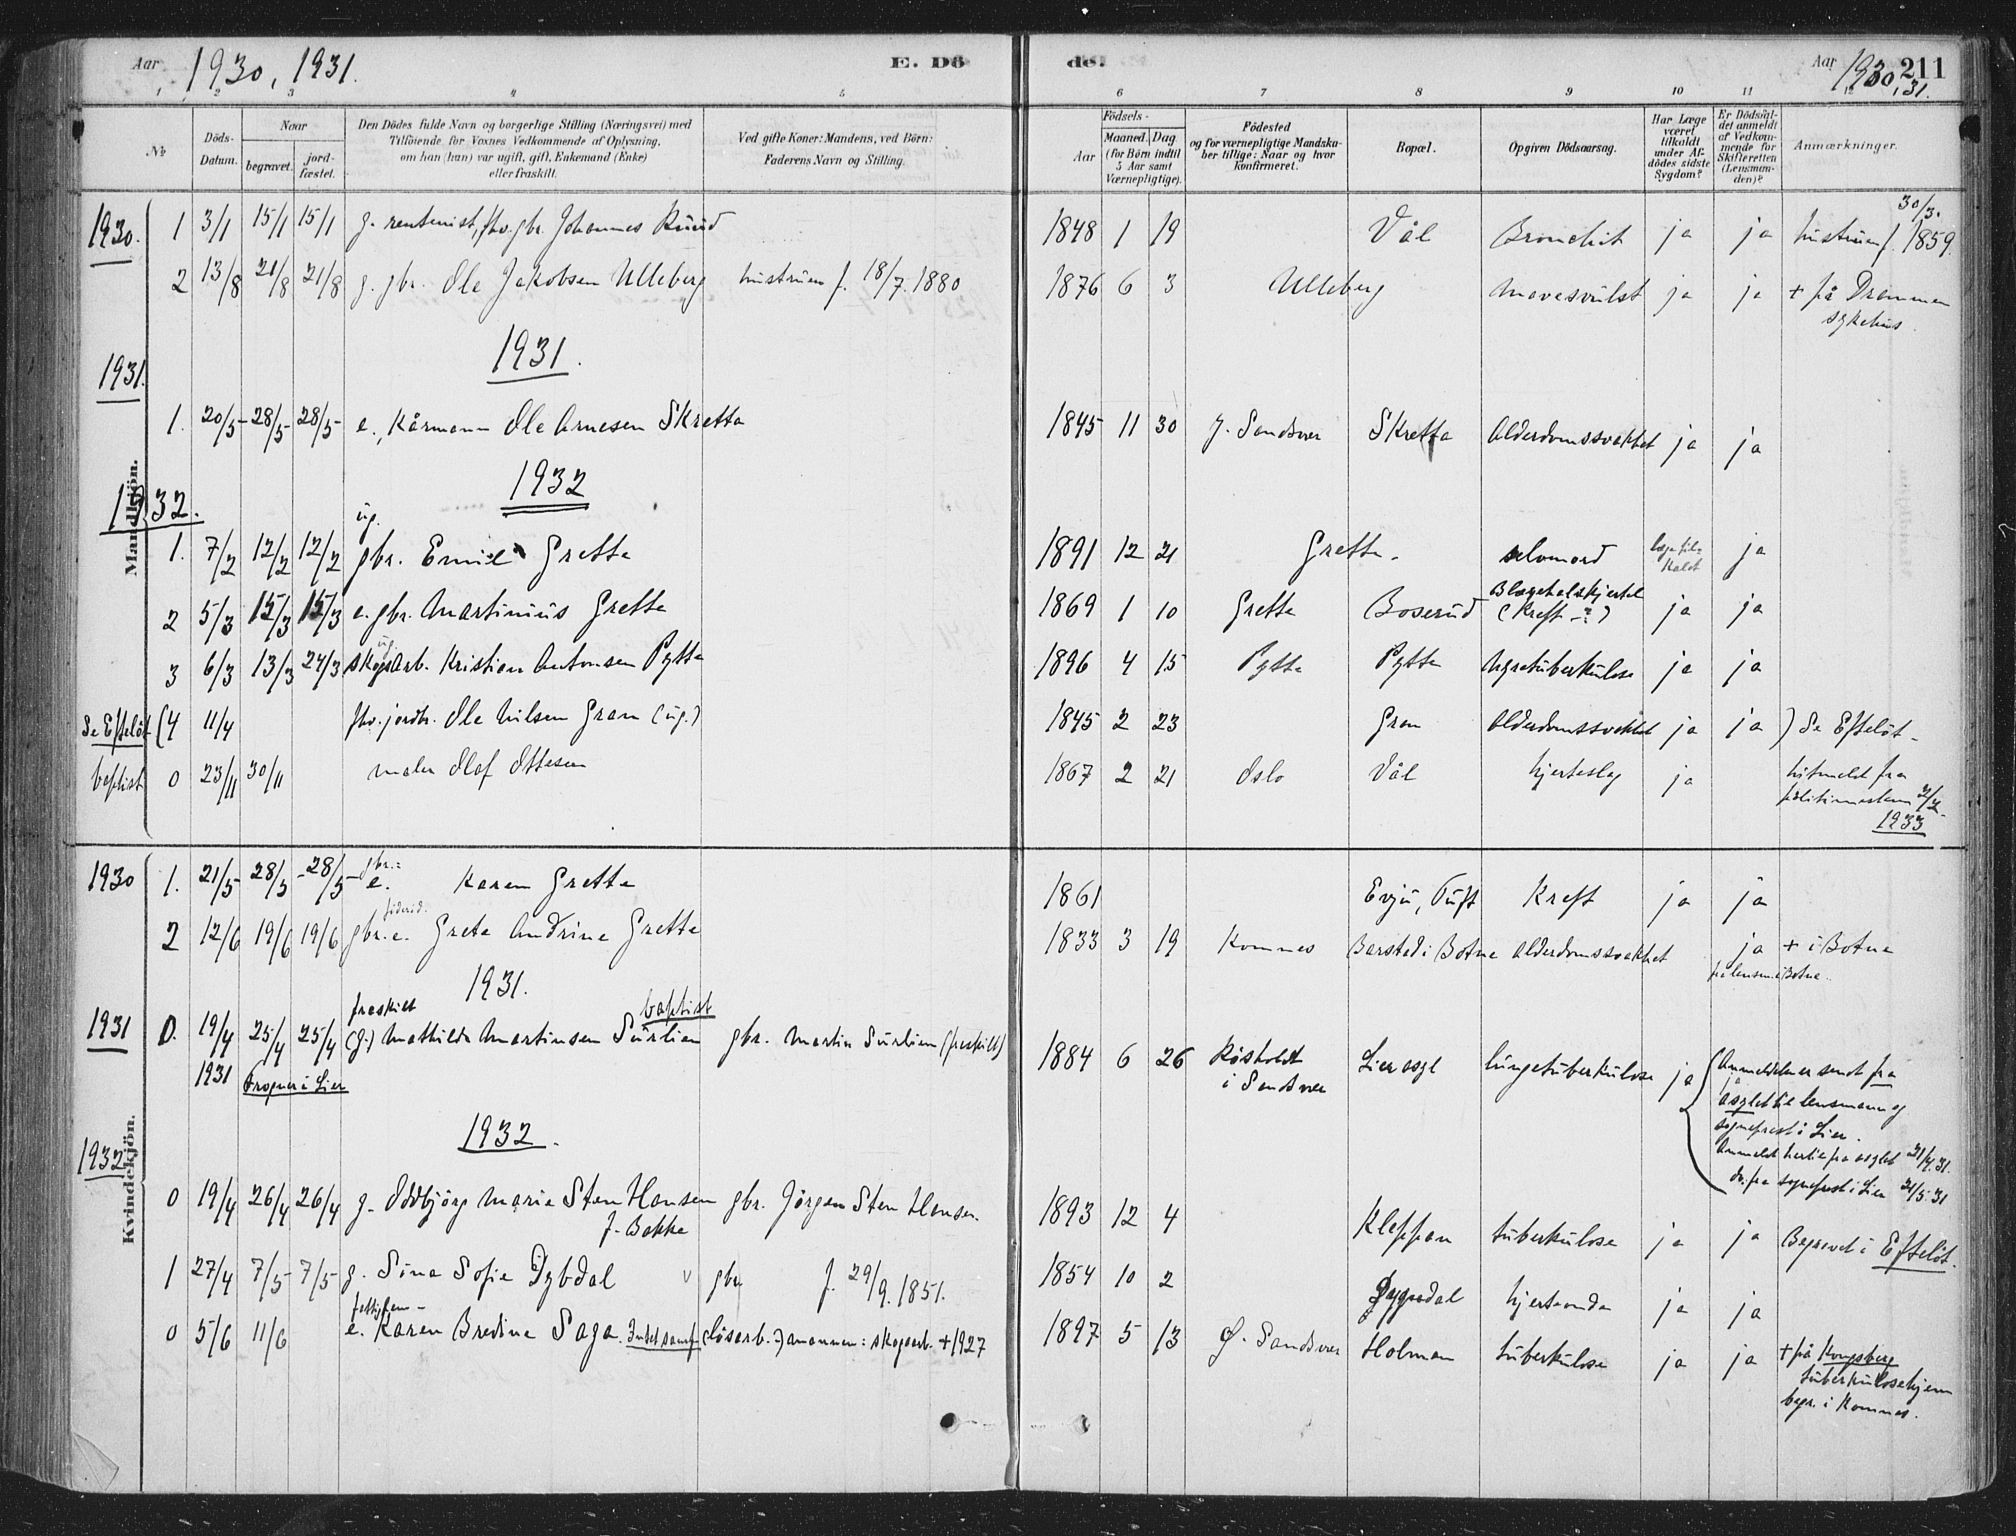 Aar 1930, 1931. E. Dö de. Aar 1930, 31. 211
1 2 3 4 5 6 7 8 9 10 11 12
№ Döds-Datum. Naar begravet. jord-fæstet. Den Dödes fulde Navn og borgerlige Stilling (Næringsvei) med Tilföiende for Voxnes Vedkommende af Oplysning, om han (hun) var ugift, gift, Enkemand (Enke) eller fraskilt. Ved gifte Koner: Mandens, ved Börn: Faderens Navn og Stilling. Födsels- Aar Maaned. Dag (for Börn indtil 5 Aar samt Værnepligtige). Födested og for værnepligtige Mandskaber tillige: Naar og hvor konfirmeret. Bopæl. Opgiven Dödsaarsag. Har Læge været tilkaldt under Afdödes sidste Sygdom? Er Dödsfaldet anmeldt af Vedkommende for Skifteretten (Lensmanden)? Anmærkninger.
Mandkjön.
1930. 1 3/1 15/1 15/1 g. rentenist, fhv. gbr. Johannes Ruud 1848 1 19 Vål Bronchit ja ja hustruen f. 30/3. 1859.
2 13/8 21/8 21/8 g. gbr. Ole Jakobsen Ulleberg hustruen f. 18/7. 1880 1876 6 3 Ulleberg mavesvulst ja ja + på Drammen sykehus.
1931. 1931.
1. 20/5 28/5 28/5 e., kårmann Ole Arnesen Skretta 1845 11 30 Y. Sandsver Skretta Alderdomssvakhet ja ja
1932. 1932
1. 7/2 12/2 12/2 ug. gbr. Emil Grette 1891 12 21 Grette. selvmord ja
2 5/3 15/3 15/3 e. gbr. Martinius Grette 1869 1 10 Grette Boserud Blærehalskjertel (Kreft ?) ja ja
3 6/3 13/3 24/3 ug. skogsarb. Kristian Antonsen Pytte 1896 4 15 Pytte Pytte Nyretuberkulose ja ja
Se Efteløt (4 11/4 fhv. jordbr. Ole Nilsen Gran (ug.) 1845 2 23 Gran Alderdomssvakhet ja ja ) Se Efteløt
baptist 0 23/11 30/11 maler Olaf Ottesen 1867 2 21 Oslo Vål hjerteslag ja hitmeldt fra politimesteren 1933
Kvindekjön.
1930 1. 21/5 28/5 28/5 gbr.: e. Karen Grette 1861 Evju, Tuft Kreft ja ja
2 12/6 19/6 19/6 gbr. e. Grete Andrine Grette 1833 3 19 Komnes Barstad i Botne Alderdomssvakhet ja + i Botne
fra lensm. i Botne.
1931.
1931 0. 19/4 25/4 25/4 fraskilt (g.) Mathilde Martinsen Surlien baptist gbr. Martin Surlien (fraskilt) 1884 6 26 i Sandsver Lier asyl lungetuberkulose ja Anmeldelser sendt fra
1931 Frogner i Lier asylet til lensmann og
sogneprest i Lier.
Anmeldt hertil fra asylet 21/4. 31.
Do. fra sogneprest i Lier 21/5 31
1932 1932.
0 19/4 26/4 26/4 g. Oddbjörg Marie Sten Hansen f. Bakke gbr. Jørgen Sten Hansen. 1893 12 4 Kleppan tuberkulose ja ja Begravet i Efteløt.
1 27/4 7/5 7/5 g. Sina Sofie Dybdal gbr f. 29/9. 1851. 1854 10 2 hjerteonde ja ja
0 5/6 11/6 e. Karen Bredine Saga. (løsarb.) mannen: skogsarb. + 1927 1897 5 13 Ø. Sandsver Holman tuberkulose ja ja + på Kongsberg tuberkulosehjem begr. i Komnes.